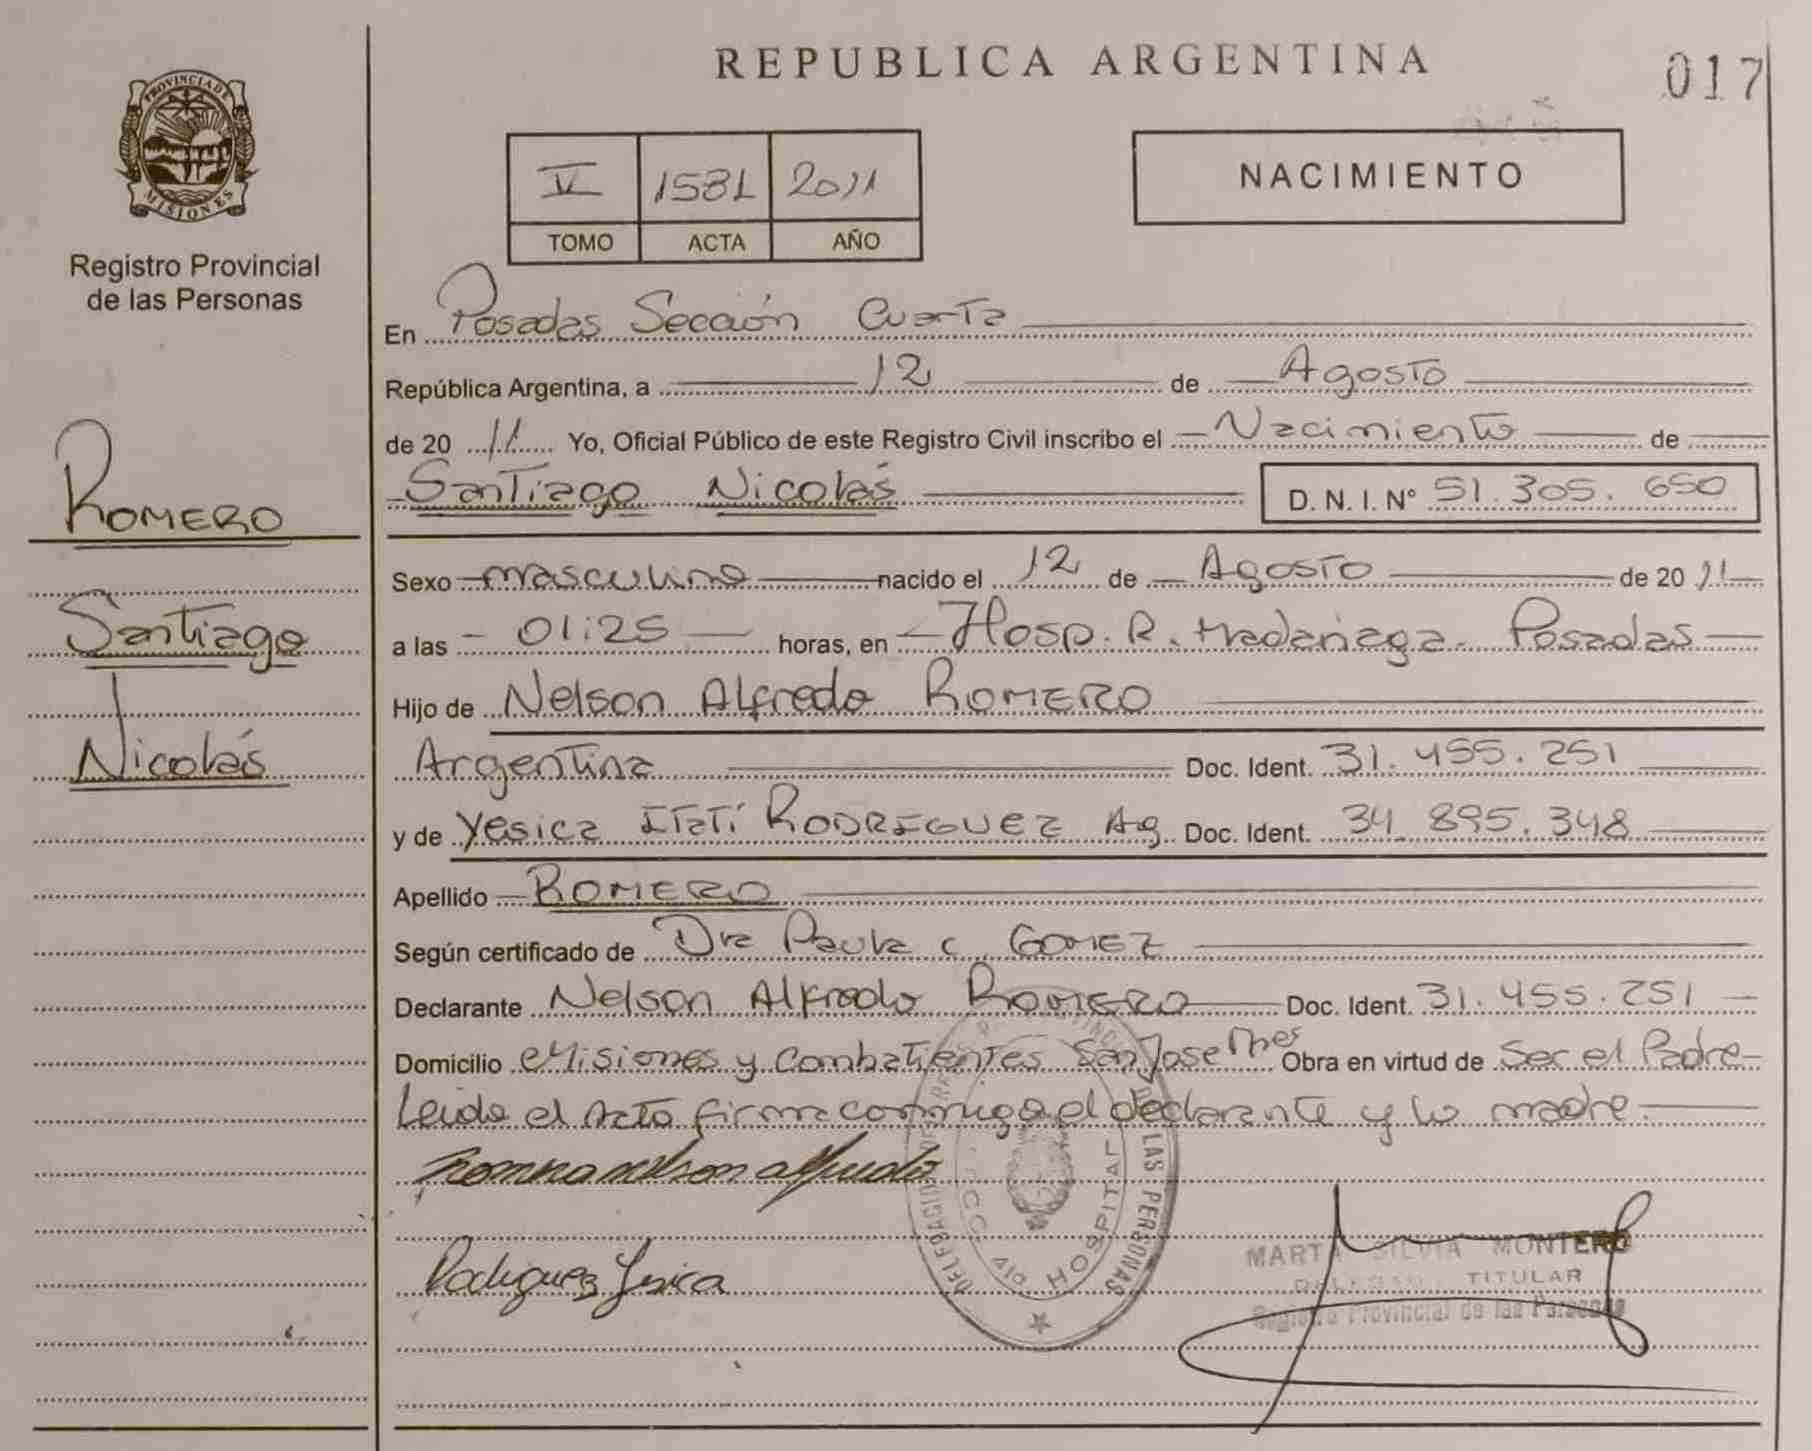 REPUBLICA ARGENTINA
017
PROVINCIA DE
MISIONES
Registro Provincial
de las Personas
V 1581 2011
TOMO ACTA AÑO
NACIMIENTO
En Posadas Sección Cuarta
República Argentina, a 12 de Agosto
de 20 11 Yo, Oficial Público de este Registro Civil inscribo el Nacimiento de
Santiago Nicolás D. N. I. Nº 51.305.650
ROMERO
Santiago
Nicolás
Sexo masculino nacido el 12 de Agosto de 20 11
a las 01:25 horas, en Hosp. R. Madariaga - Posadas
Hijo de Nelson Alfredo ROMERO
Argentina Doc. Ident. 31.455.251
y de Yesica Itatí RODRIGUEZ Ag Doc. Ident. 34.895.348
Apellido ROMERO
Según certificado de Dra Paula C. GOMEZ
Declarante Nelson Alfredo ROMERO Doc. Ident. 31.455.251
Domicilio Misiones y Combatientes San Jose Mnes Obra en virtud de Ser el Padre
Leida el Acta firma conmigo el declarante y la madre.
Romero Nelson Alfredo
Rodriguez Yesica
LAS PERSONAS
HOSPITAL
MARTA SILVIA MONTERO
TITULAR
Registro Provincial de las Personas